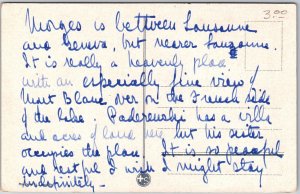 Morges is between Lausanne
and Geneva, but nearer Lausanne.
It is really a heavenly place
with an especially fine view of
Mont Blanc over on the French side
of the lake. Paderewski has a villa
and acres of land here but his sister
occupies the place. It is so peaceful
and restful I wish I might stay
indefinitely -
3.00